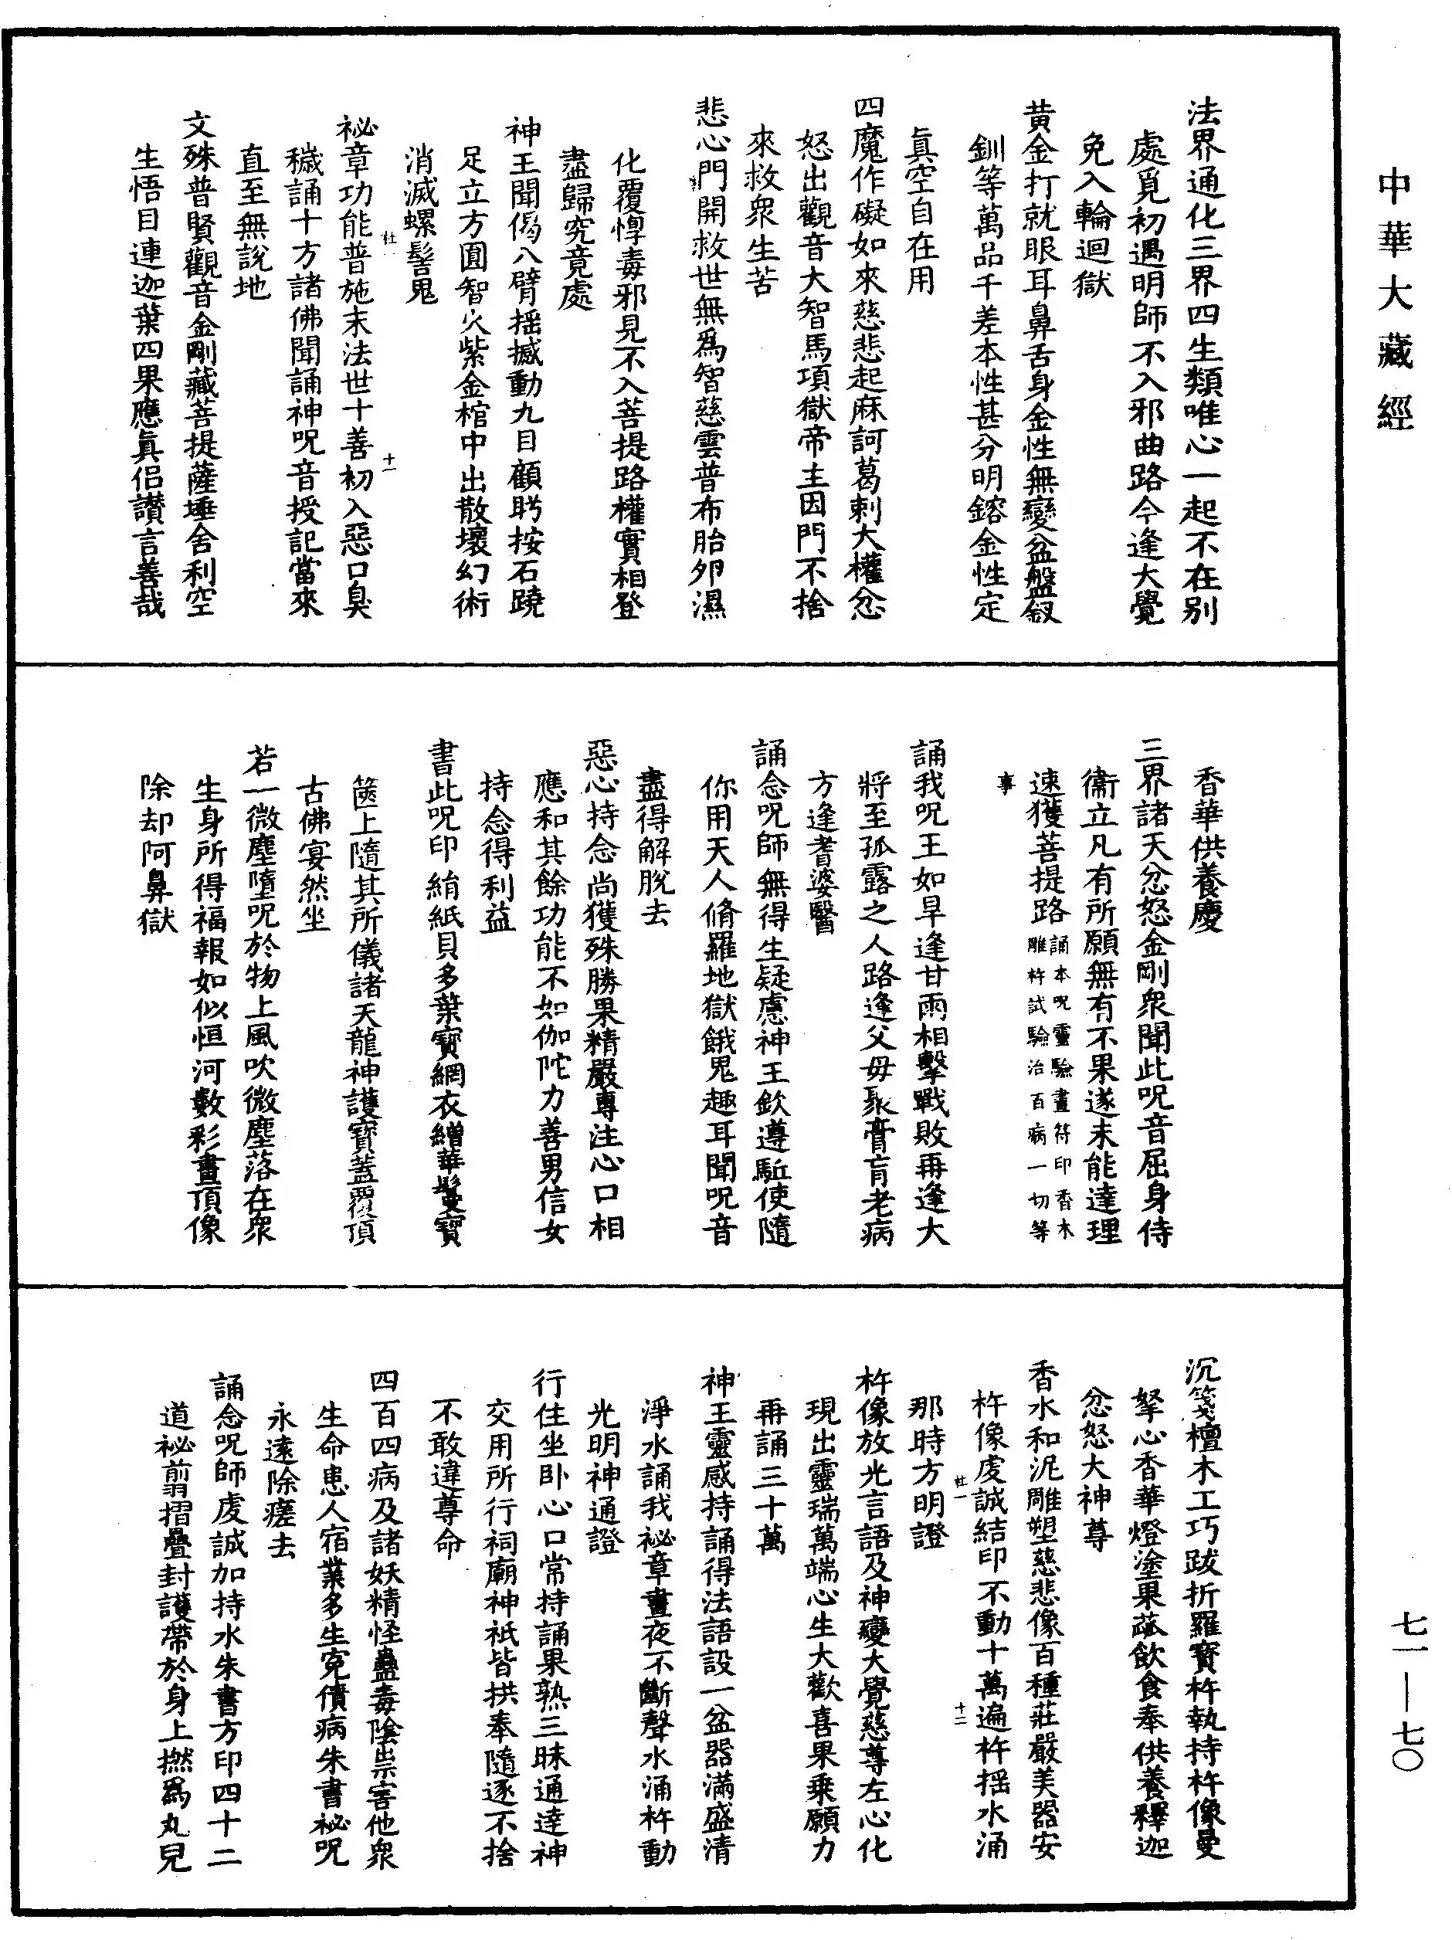 中華大藏經
法界通化三界四生類唯心一起不在别
處覓初遇明師不入邪曲路今逢大覺
免入輪迴獄
黄金打就眼耳鼻舌身金性無變盆盤釵
釧等萬品千差本性甚分明鎔金性定
真空自在用
四魔作礙如來慈悲起麻訶葛剌大權忿
怒出觀音大智馬項獄帝主因門不捨
來救衆生苦
悲心門開救世無爲智慈雲普布胎卵濕
化覆惸毒邪見不入菩提路權實相登
盡歸究竟處
神王聞偈八臂揺撼動九目顧眄按石蹺
足立方圓智火紫金棺中出散壞幻術
消滅螺髻鬼
祕章功能普施末法世十善初入惡口臭
穢誦十方諸佛聞誦神呪音授記當來
直至無說地
文殊普賢觀音金剛藏菩提薩埵舍利空
生悟目連迦葉四果應真侣讃言善哉
香華供養慶
三界諸天忿怒金剛衆聞此呪音屈身侍
衞立凡有所願無有不果遂未能達理
速獲菩提路誦本呪靈驗畫符印香木
雕杵試驗治百病一切等
事
誦我呪王如旱逢甘雨相擊戰敗再逢大
將至孤露之人路逢父母聚膏肓老病
方逢耆婆醫
誦念呪師無得生疑慮神王欽遵駈使隨
你用天人脩羅地獄餓鬼趣耳聞呪音
盡得解脫去
惡心持念尚獲殊勝果精嚴專注心口相
應和其餘功能不如伽陀力善男信女
持念得利益
書此呪印絹紙貝多葉寶網衣繒華鬘寶
篋上隨其所儀諸天龍神護寶蓋覆頂
古佛宴然坐
若一微塵墮呪於物上風吹微塵落在衆
生身所得福報如似恒河數彩畫頂像
除却阿鼻獄
沉箋檀木工巧跋折羅寶杵執持杵像曼
拏心香華燈塗果蓏飲食奉供養釋迦
忿怒大神尊
香水和泥雕塑慈悲像百種莊嚴美器安
杵像虔誠結印不動十萬遍杵揺水涌
那時方明證
杵像放光言語及神變大覺慈尊左心化
現出靈瑞萬端心生大歡喜果乗願力
再誦三十萬
神王靈感持誦得法語設一盆器滿盛清
淨水誦我祕章晝夜不斷聲水涌杵動
光明神通證
行住坐卧心口常持誦果熟三昧通達神
交用所行祠廟神祇皆拱奉隨逐不捨
不敢違尊命
四百四病及諸妖精怪蠱毒陰祟害他衆
生命患人宿業多生寃債病朱書祕呪
永遠除瘥去
誦念呪師虔誠加持水朱書方印四十二
道祕剪摺疊封護帶於身上撚爲丸兒
杜 十一
杜一 十二
七一—七〇